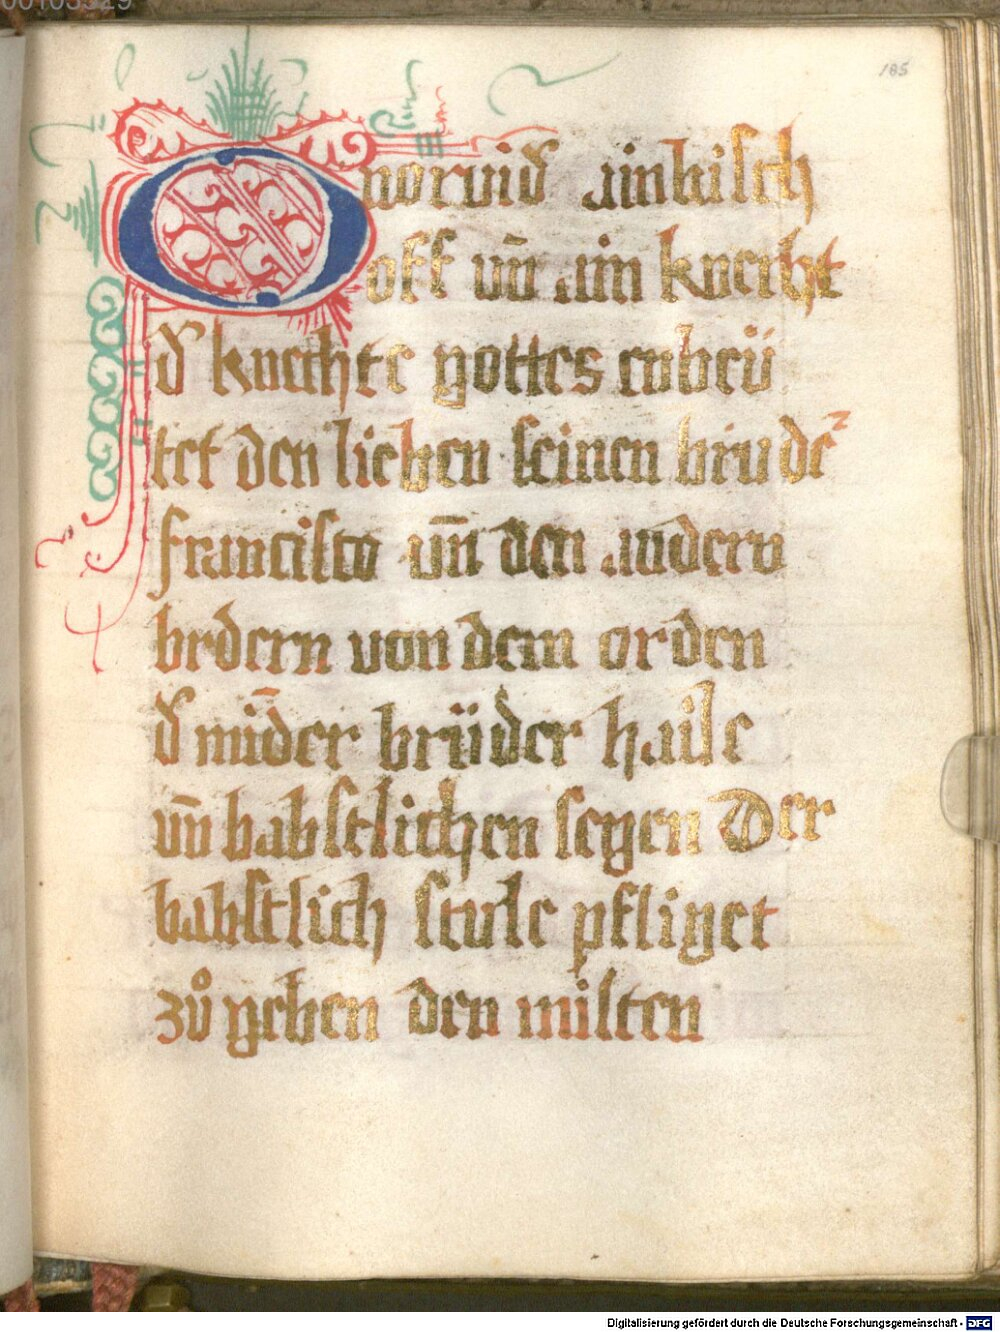 185
Onorvid ain bisch
off vn̄ ain knecht
d' knechte gottes enbeü
tet den lieben seinen brude²
francisco vn̄ den andern
bedern von dem orden
d' mīder brüder haile
vn̄ babstlichen segen Der
babstlich stule pfliget
zů geben den misten
Digitalisierung gefördert durch die Deutsche Forschungsgemeinschaft - DFG